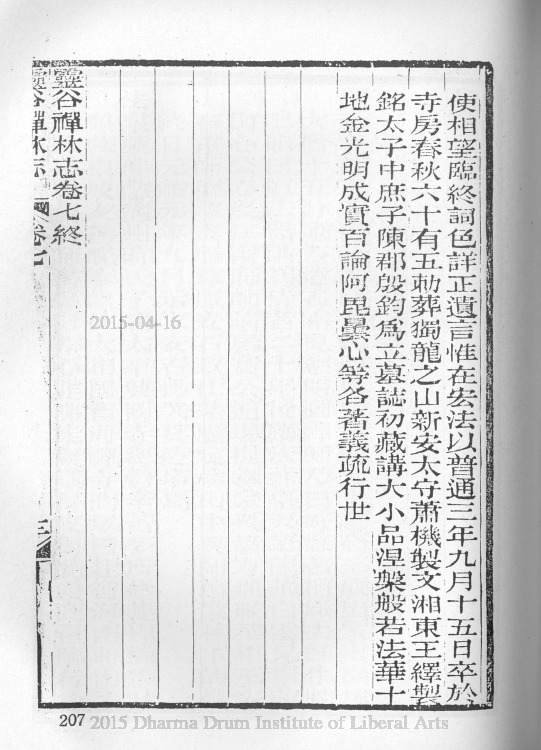 使相望臨終詞色詳正遺言惟在宏法以普通三年九月十五日卒於
寺房春秋六十有五勅葬獨龍之山新安太守蕭機製文湘東王繹製
銘太子中庶子陳郡殷鈞為立墓誌初藏講大小品涅槃般若法華十
地金光明成實百論阿毘曇心等各著義疏行世
靈谷禪林志卷七終
靈谷禪林志 卷七
三
2015-04-16
207 2015 Dharma Drum Institute of Liberal Arts